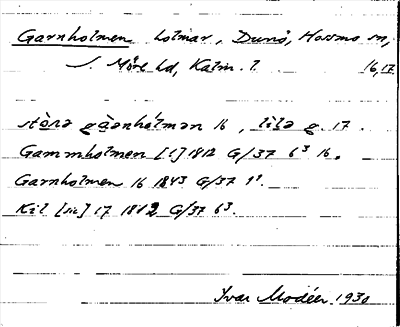 Garnholmen holmar, Dunö, Hossmo sn,
S. Möre hd, Kalm. l. 16, 17
stòra gàənhólmən 16, lìl̥a g. 17.
Gammholmen [!] 1812 G/37 6³ 16.
Garnholmen 16 1843 G/37 1¹.
Kil [sic] 17 1812 G/37 6³.
Ivar Modéer 1930